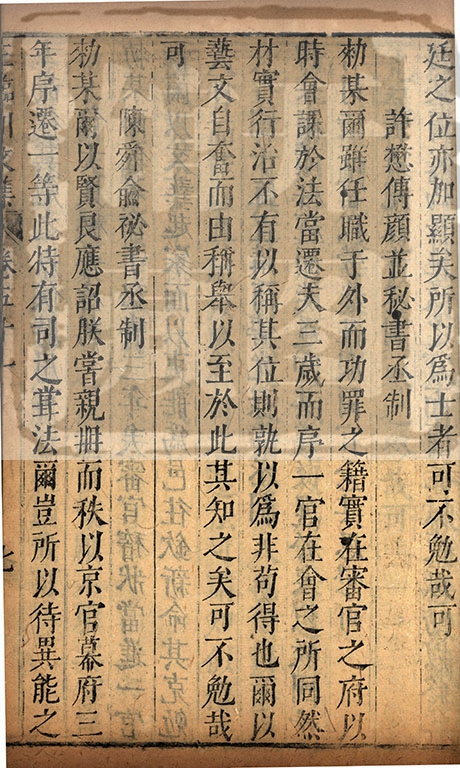 廷之位亦加顯矣所以爲士者可不勉哉可
許懋傳顏並秘書丞制
勑某爾雖任職于外而功罪之籍實在審官之府以
時會課於法當遷夫三歲而序一官在會之所同然
材實行治不有以稱其位則孰以爲非苟得也爾以
藝文自奮而由稱舉以至於此其知之矣可不勉哉
可
陳舜俞秘書丞制
勑某爾以賢良應詔朕嘗親冊而秩以京官幕府三
年序遷一等此特有司之常法爾豈所以待異能之
王臨川文集 卷五十一 七